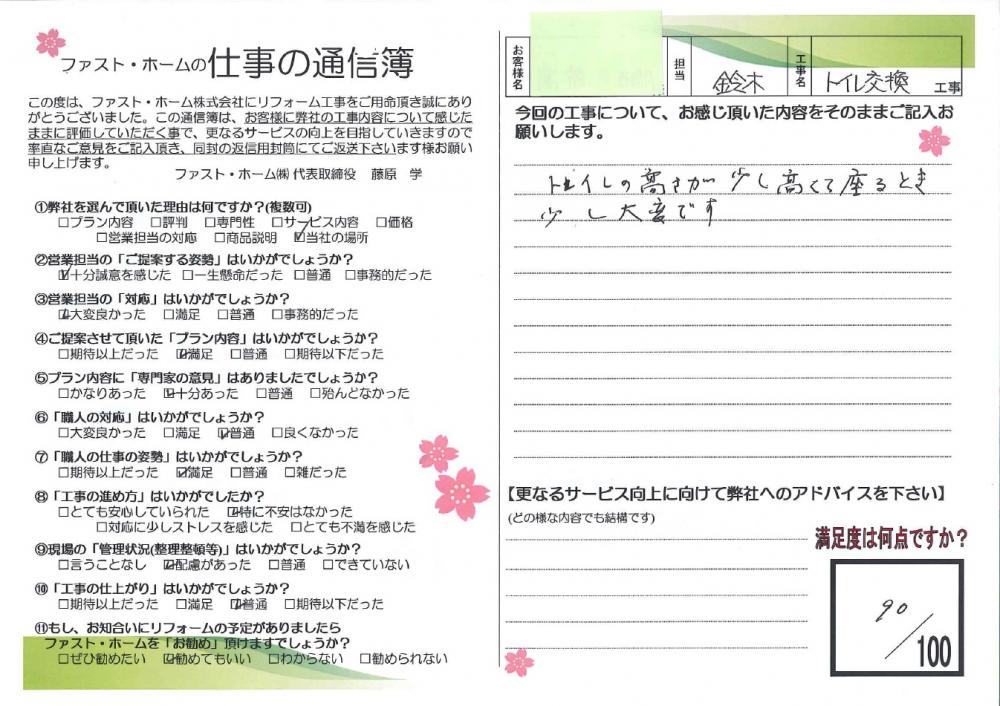 ファスト・ホームの仕事の通信簿
この度は、ファスト・ホーム株式会社にリフォーム工事をご用命頂き誠にあり
がとうございました。この通信簿は、お客様に弊社の工事内容について感じた
ままに評価していただく事で、更なるサービスの向上を目指していきますので
率直なご意見をご記入頂き、同封の返信用封筒にてご返送下さいます様お願い
申し上げます。
ファスト・ホーム㈱ 代表取締役 藤原 学
①弊社を選んで頂いた理由は何ですか？(複数可)
□プラン内容 □評判 □専門性 □サービス内容 □価格
□営業担当の対応 □商品説明 ☑当社の場所
②営業担当の「ご提案する姿勢」はいかがでしょうか？
☑十分誠意を感じた □一生懸命だった □普通 □事務的だった
③営業担当の「対応」はいかがでしょうか？
☑大変良かった □満足 □普通 □事務的だった
④ご提案させて頂いた「プラン内容」はいかがでしょうか？
□期待以上だった ☑満足 □普通 □期待以下だった
⑤プラン内容に「専門家の意見」はありましたでしょうか？
□かなりあった ☑十分あった □普通 □殆んどなかった
⑥「職人の対応」はいかがでしょうか？
□大変良かった □満足 ☑普通 □良くなかった
⑦「職人の仕事の姿勢」はいかがでしょうか？
□期待以上だった ☑満足 □普通 □雑だった
⑧「工事の進め方」はいかがでしたか？
□とても安心していられた ☑特に不安はなかった
□対応に少しストレスを感じた □とても不満を感じた
⑨現場の「管理状況(整理整頓等)」はいかがでしょうか？
□言うことなし ☑配慮があった □普通 □できていない
⑩「工事の仕上がり」はいかがでしょうか？
□期待以上だった □満足 ☑普通 □期待以下だった
⑪もし、お知合いにリフォームの予定がありましたら
ファスト・ホームを「お勧め」頂けますでしょうか？
□ぜひ勧めたい ☑勧めてもいい □わからない □勧められない
お客様名 担当 鈴木 工事名 トイレ交換 工事
今回の工事について、お感じ頂いた内容をそのままご記入お
願いします。
トイレの高さが少し高くて座るとき
少し大変です
【更なるサービス向上に向けて弊社へのアドバイスを下さい】
(どの様な内容でも結構です)
満足度は何点ですか？
90/100